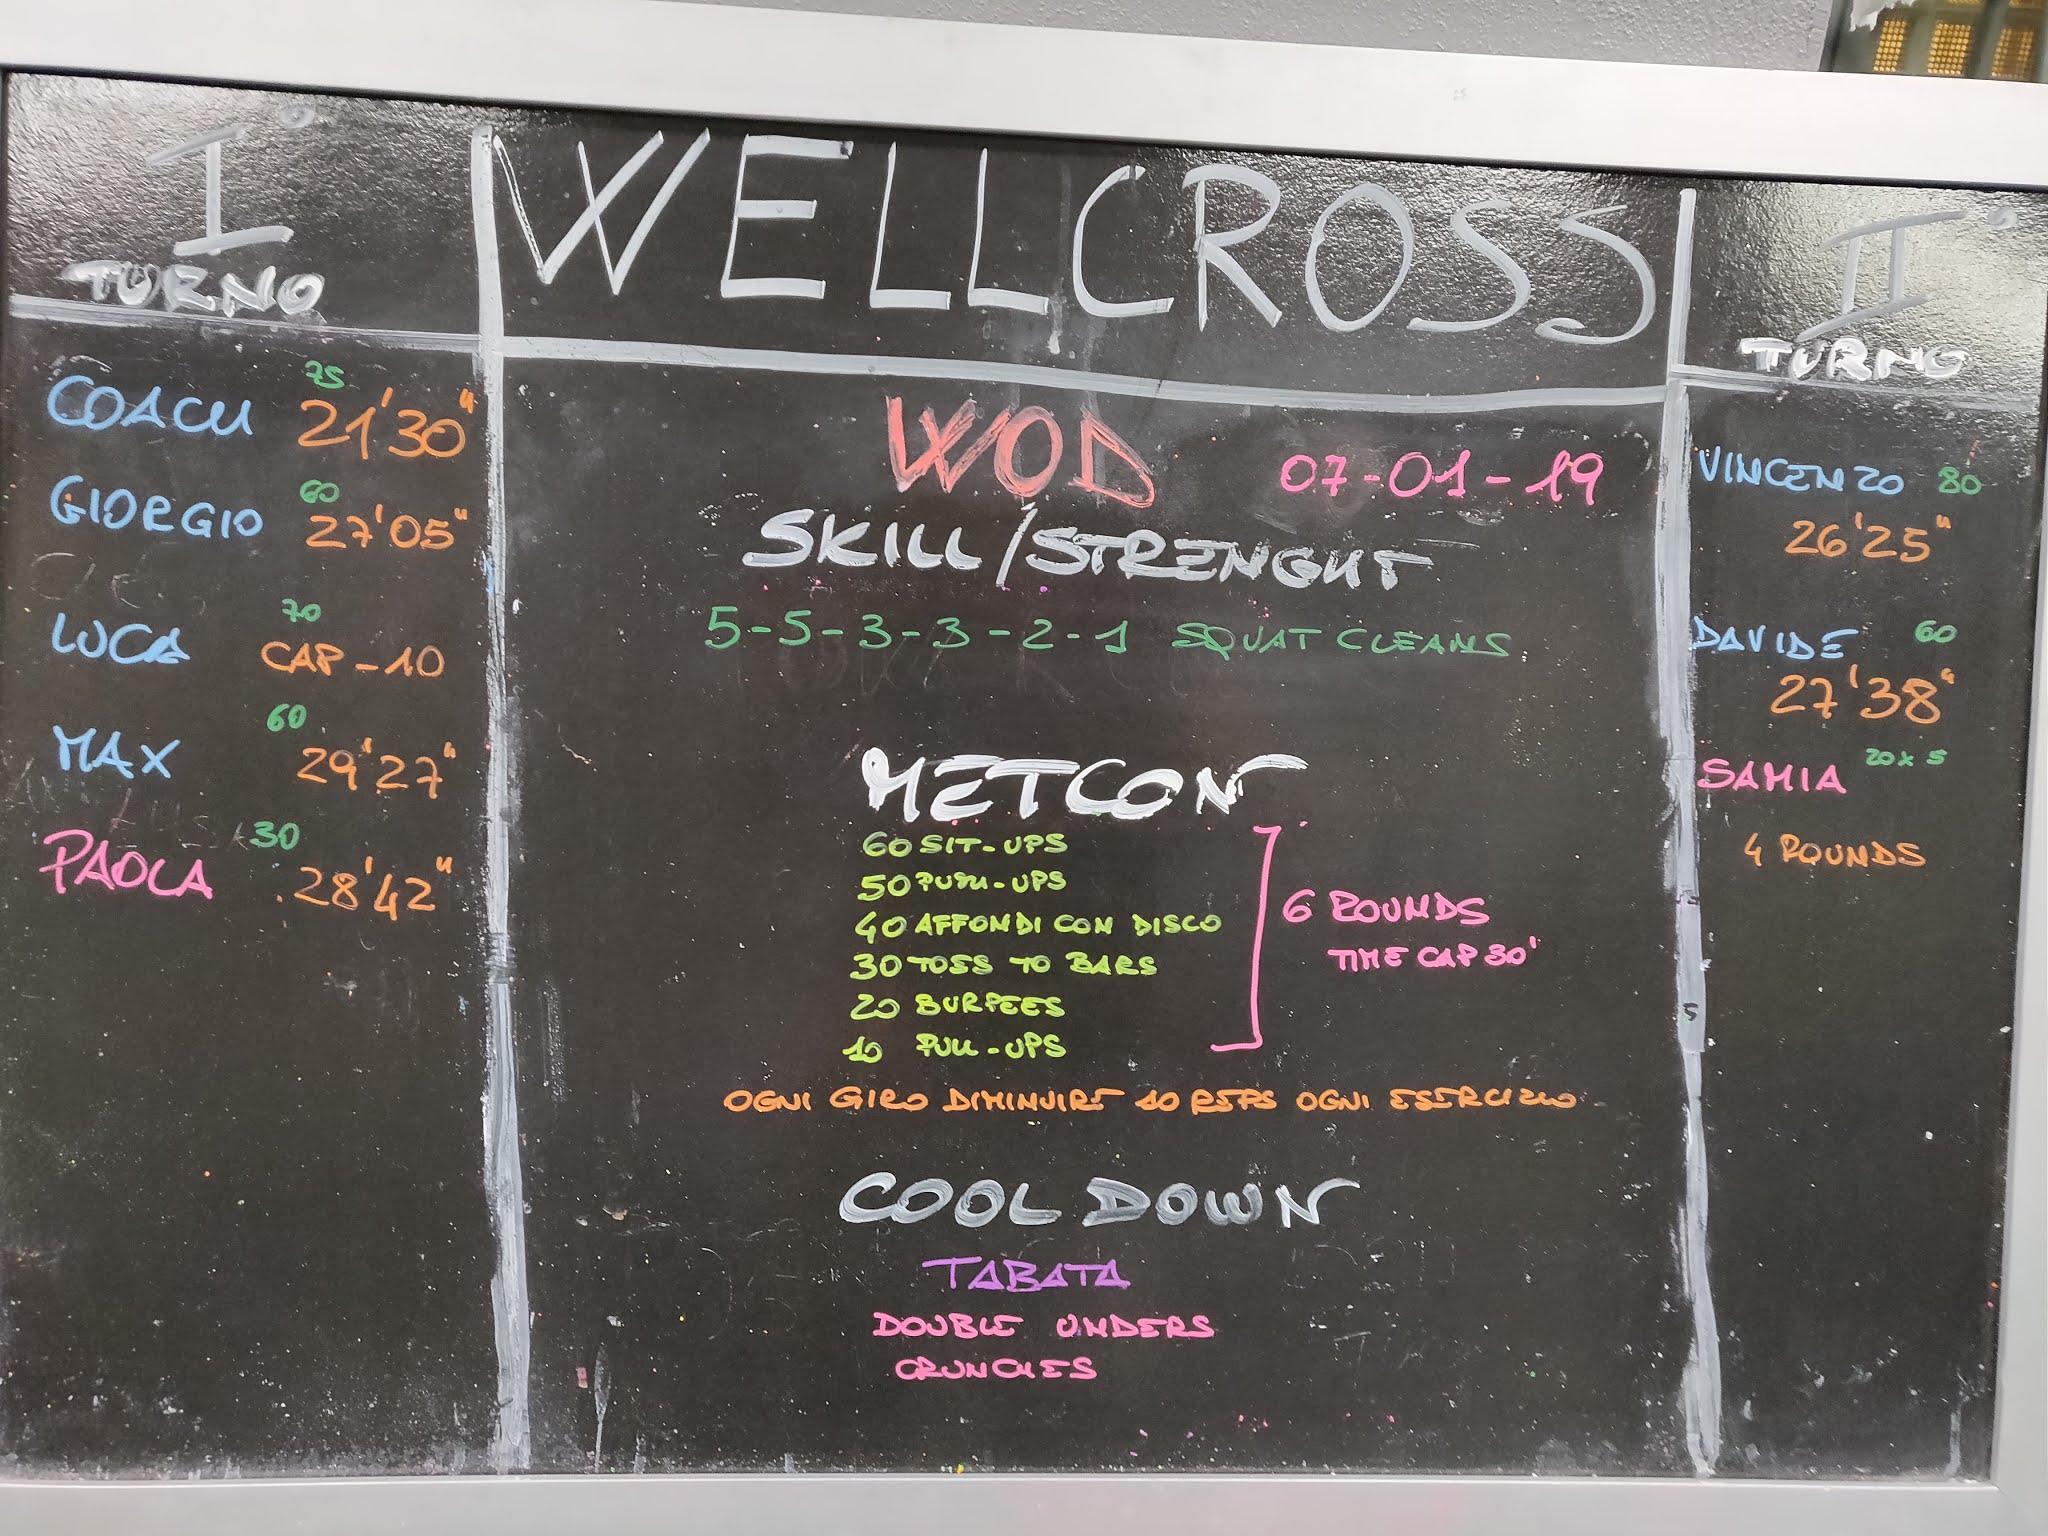 I°
TURNO
COACH 75 21'30"
GIORGIO 60 27'05"
LUCA 70 CAP-10
MAX 60 29'27"
PAOLA 30 28'42"
WELLCROSS
WOD 07-01-19
SKILL/STRENGHT
5-5-3-3-2-1 SQUAT CLEANS
METCON
60 SIT-UPS
50 PUSH-UPS
40 AFFONDI CON DISCO
30 TOES TO BARS
20 BURPEES
10 PULL-UPS
6 ROUNDS
TIME CAP 30'
OGNI GIRO DIMINUIRE 10 REPS OGNI ESERCIZIO
COOL DOWN
TABATA
DOUBLE UNDERS
CRUNCHES
II°
TURNO
VINCENZO 80
26'25"
DAVIDE 60
27'38"
SAMIA 20x5
4 ROUNDS